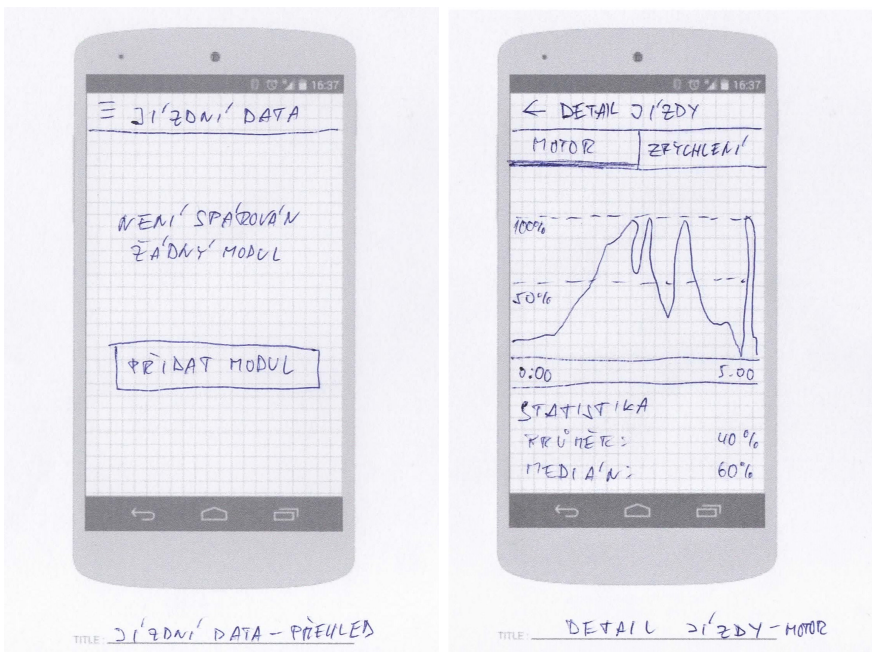 16:37
JÍZDNÍ DATA
NENÍ SPÁROVÁN
ŽÁDNÝ MODUL
PŘIDAT MODUL
TITLE: JÍZDNÍ DATA - PŘEHLED
16:37
← DETAIL JÍZDY
MOTOR ZRYCHLENÍ
100%
50%
0:00 5.00
STATISTIKA
PRŮMĚR: 40%
MEDIÁN: 60%
TITLE: DETAIL JÍZDY - MOTOR